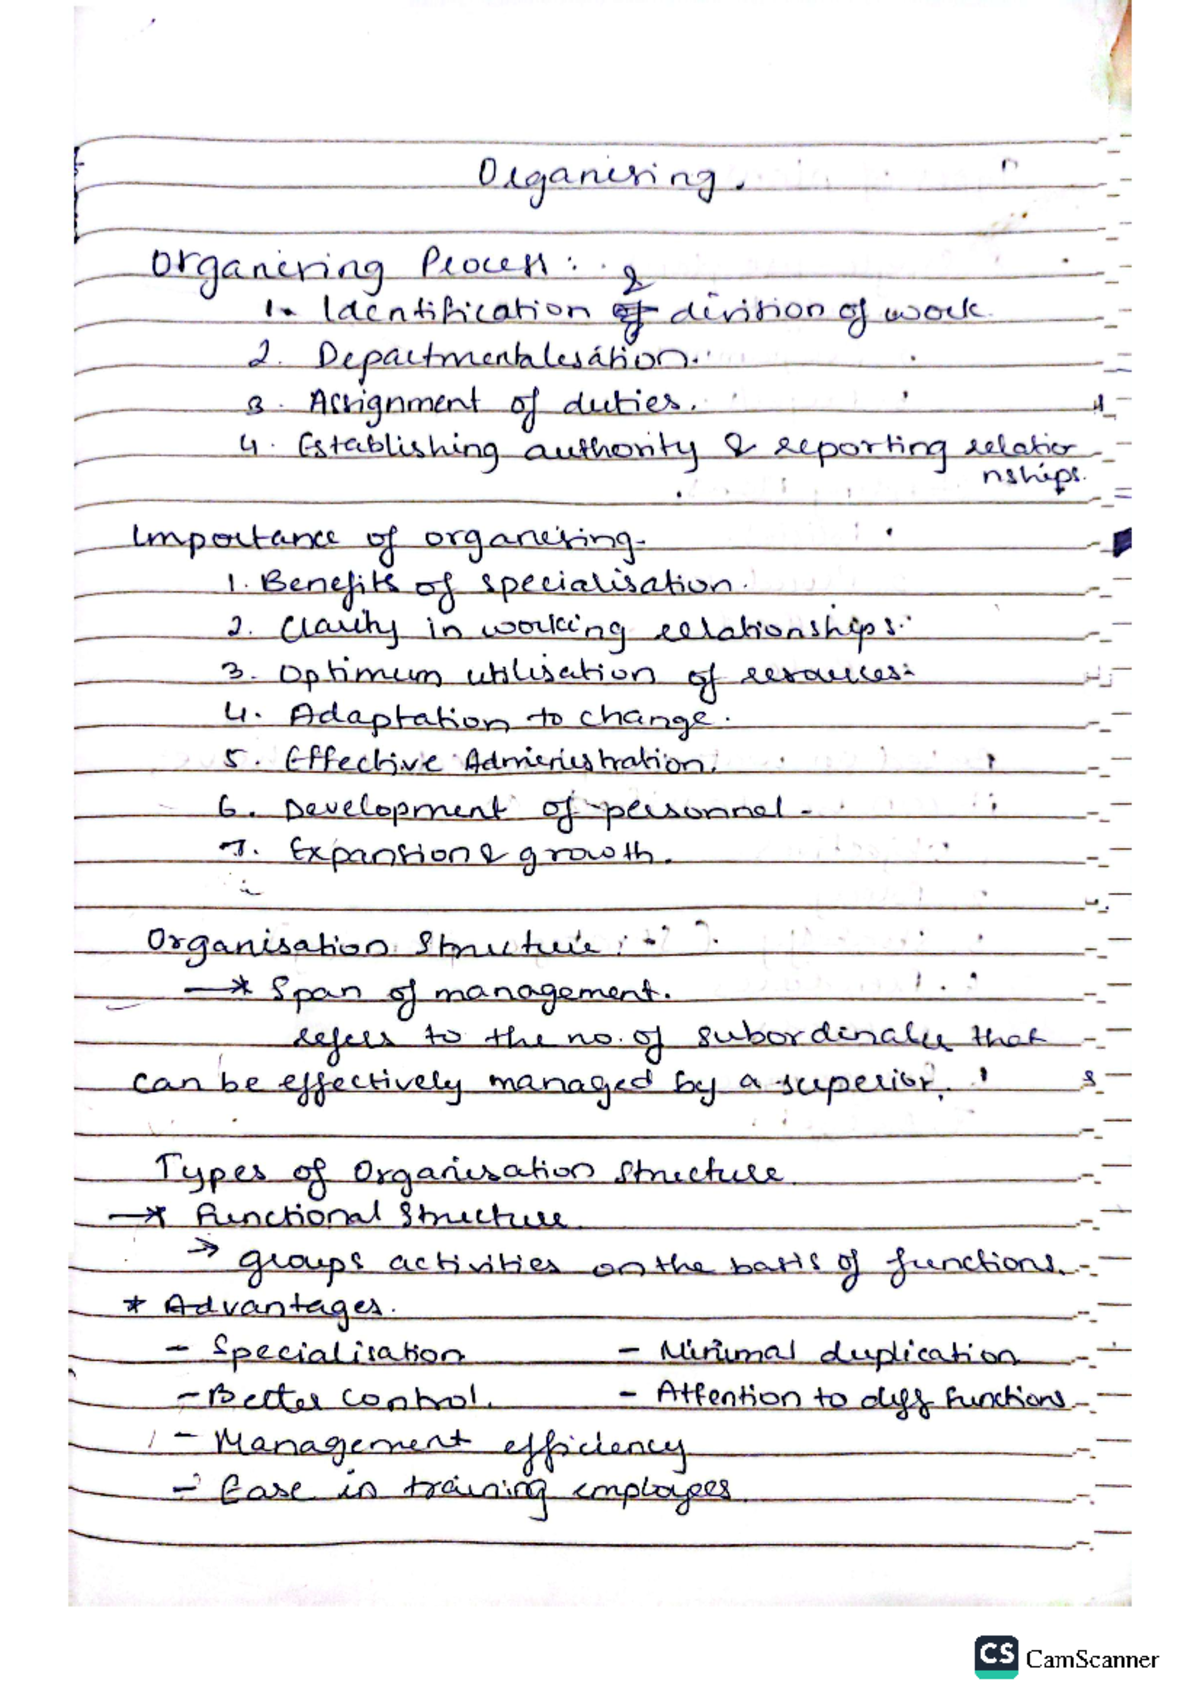 Organising.
Organising Process:
1. Identification & division of work.
2. Departmentalisation.
3. Assignment of duties.
4. Establishing authority & reporting relatio
nships.
Importance of organising.
1. Benefits of specialisation.
2. Clarity in working relationships.
3. Optimum utilisation of resources.
4. Adaptation to change.
5. Effective Administration.
6. Development of personnel.
7. Expansion & growth.
Organisation Structure:
→* Span of management.
refers to the no. of subordinates that
can be effectively managed by a superior.
Types of Organisation Structure
→* Functional Structure.
→ groups activities on the basis of functions.
* Advantages.
- Specialisation - Minimal duplication
- Better control. - Attention to diff functions
- Management efficiency
- Ease in training employees.
CS CamScanner